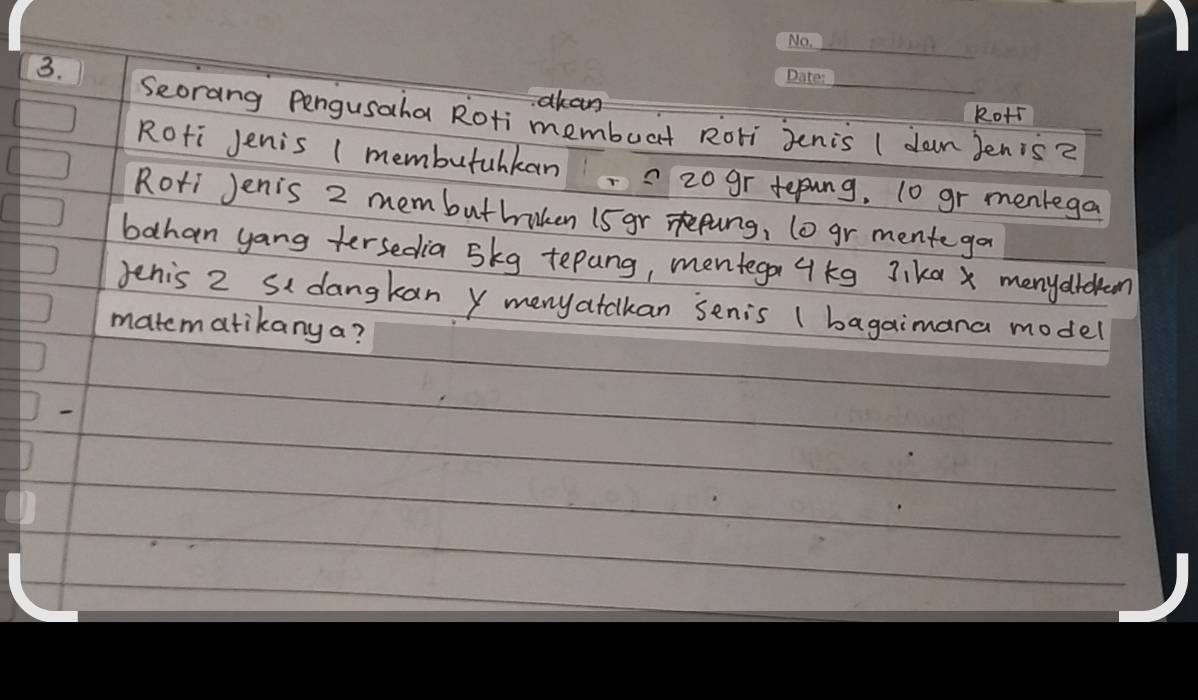 No.
Date:
3.
Seorang Pengusaha Roti akan membuat Roti Jenis 1 dan Roti Jenis 2
Roti Jenis 1 membutuhkan 20 gr tepung, 10 gr mentega
Roti Jenis 2 membuthuken 15 gr tepung, 10 gr mentega
bahan yang tersedia 5kg tepung, mentega 4 kg Jika x menyatakan
jenis 2 sedangkan y menyatakan Jenis 1 bagaimana model
matematikanya?